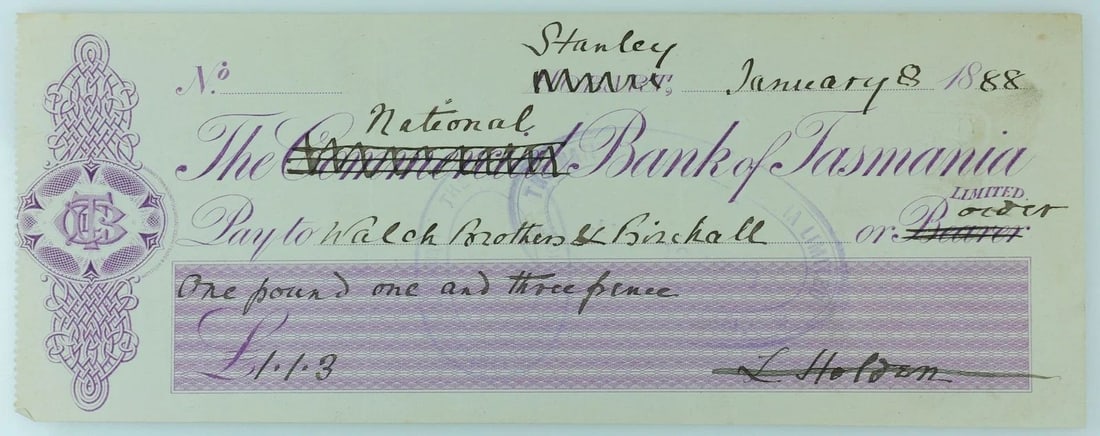 Stanley
No. January 8 1888
National
The Commercial Bank of Tasmania
LIMITED.
Pay to Walch Brothers & Birchall or Bearer order
One pound one and three pence
£1.1.3 L Holden